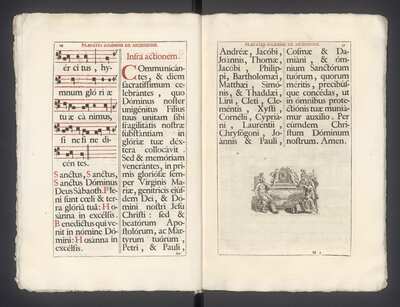 PRÆFATIO SOLEMNIS DE ASCENSIONE.
ér ci tus , hy-
mnum gló ri æ
tu æ cá nimus,
si ne fi ne di-
cén tes.
Sanctus, Sanctus,
Sanctus Dóminus
Deus Sábaoth. Ple-
ni sunt cœli & ter-
ra glóriâ tuâ: Ho-
sánna in excélsis.
Benedíctus qui ve-
nit in nómine Dó-
mini: Hosánna in
excélsis.
Infra actiónem.
COmmunicán-
tes, & diem
sacratíssimum ce-
lebrántes , quo
Dóminus noster
unigénitus Fílius
tuus unítam sibi
fragilitátis nostræ
substántiam in
glóriæ tuæ déx-
tera collocávit .
Sed & memóriam
venerántes, in pri-
mis gloriósæ sem-
per Vírginis Ma-
ríæ, genitrícis ejus-
dem Dei, & Dó-
mini nostri Jesu
Christi : sed &
beatórum Apo-
stolórum, ac Már-
tyrum tuórum ,
Petri , & Pauli ,
PRÆFATIO SOLEMNIS DE ASCENSIONE.
Andréæ, Jacóbi,
Joánnis, Thomæ,
Jacóbi , Philíp-
pi, Bartholomǽi,
Matthǽi , Simó-
nis, & Thaddǽi,
Lini, Cleti, Cle-
méntis , Xysti ,
Cornélii , Cypriá-
ni , Lauréntii ,
Chrysógoni , Jo-
ánnis & Pauli ,
Cosmæ & Da-
miáni , & óm-
nium Sanctórum
tuórum, quorum
méritis, precibúf-
que concédas, ut
in ómnibus prote-
ctiónis tuæ muniá-
mur auxílio . Per
eúmdem Chri-
stum Dóminum
nostrum. Amen.